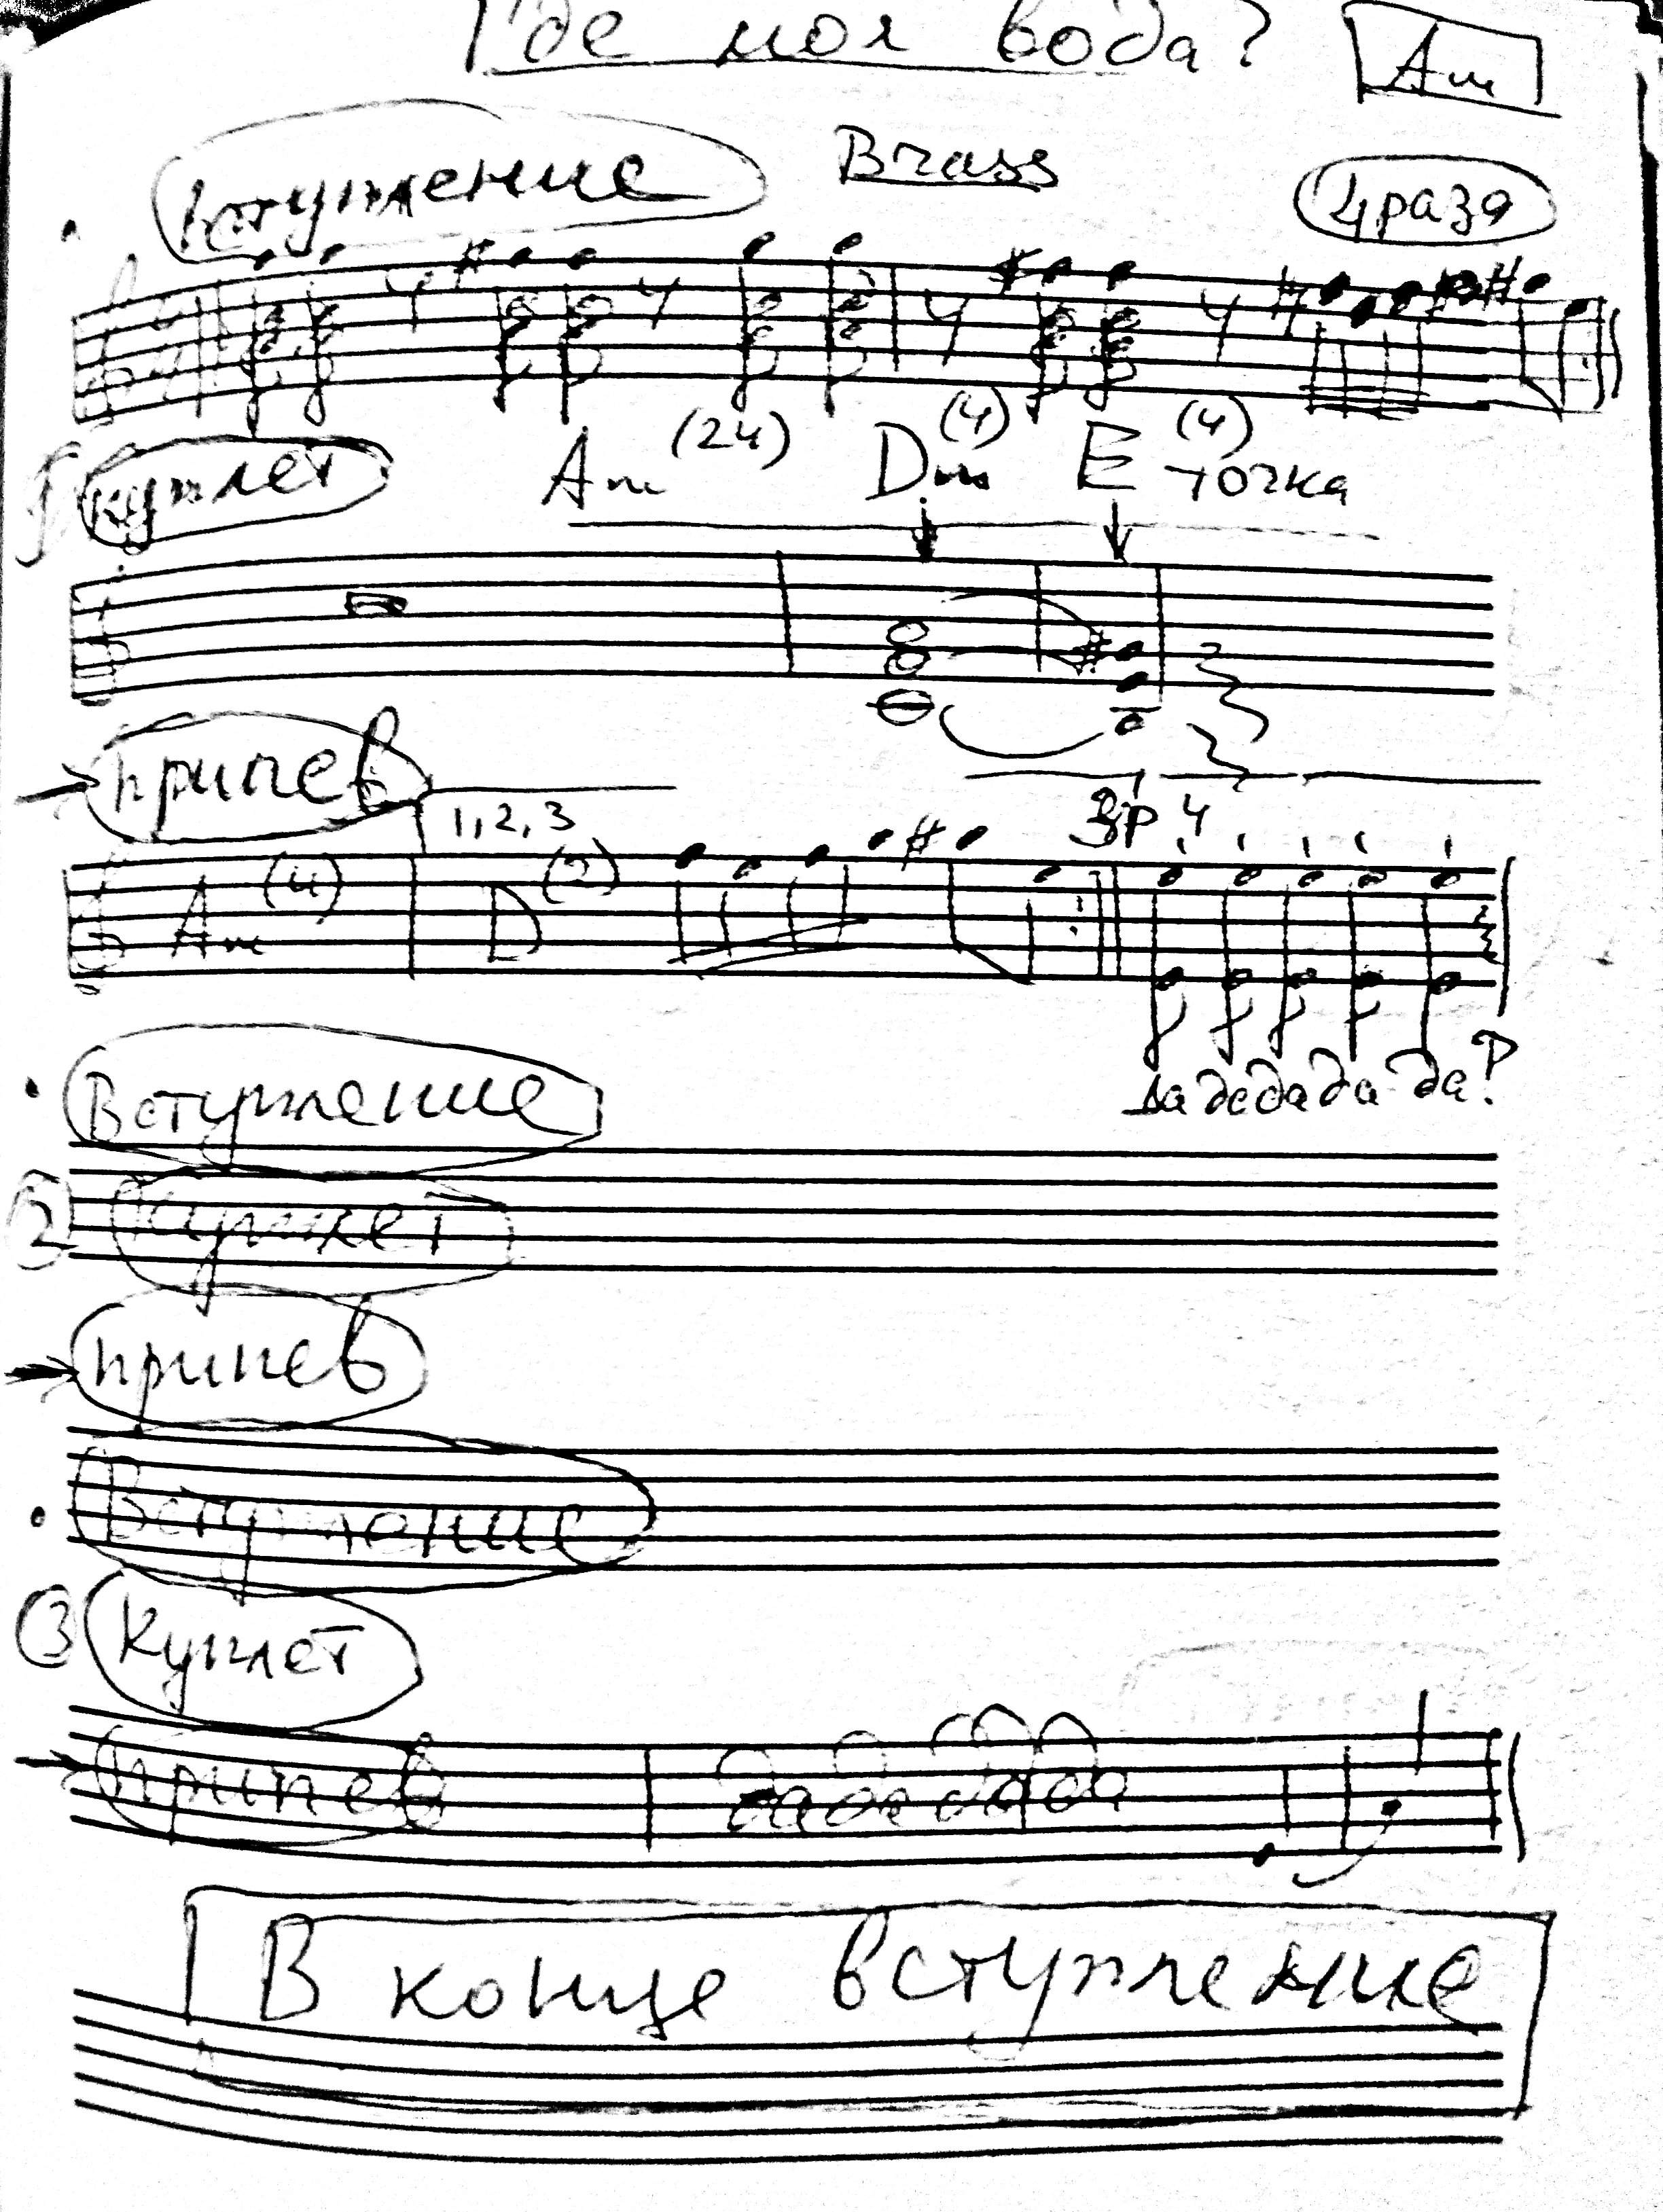 Где моя вода? Am
Вступление Brass 4 раза
Куплет Am (24) Dm (4) E (4) точка
Припев
1, 2, 3
Am (4) D (2)
да де да да да?
Вступление
2 Куплет
припев
Вступление
3 Куплет
припев
В конце вступление